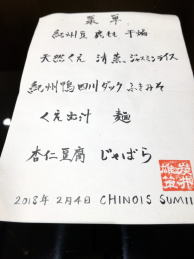 菜單
紀州豆 鹿もも 干焼
天然くえ 清蒸 ジャスミンライス
紀州鴨 四川ダック ふきみそ
くえ出汁 麺
杏仁豆腐 じゃばら
2018年2月4日 CHINOIS SUMII